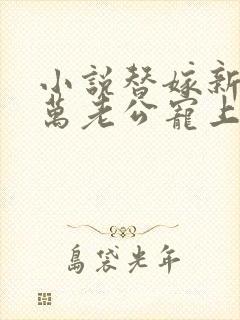 小説替嫁新
萬老公寵上
島袋光年